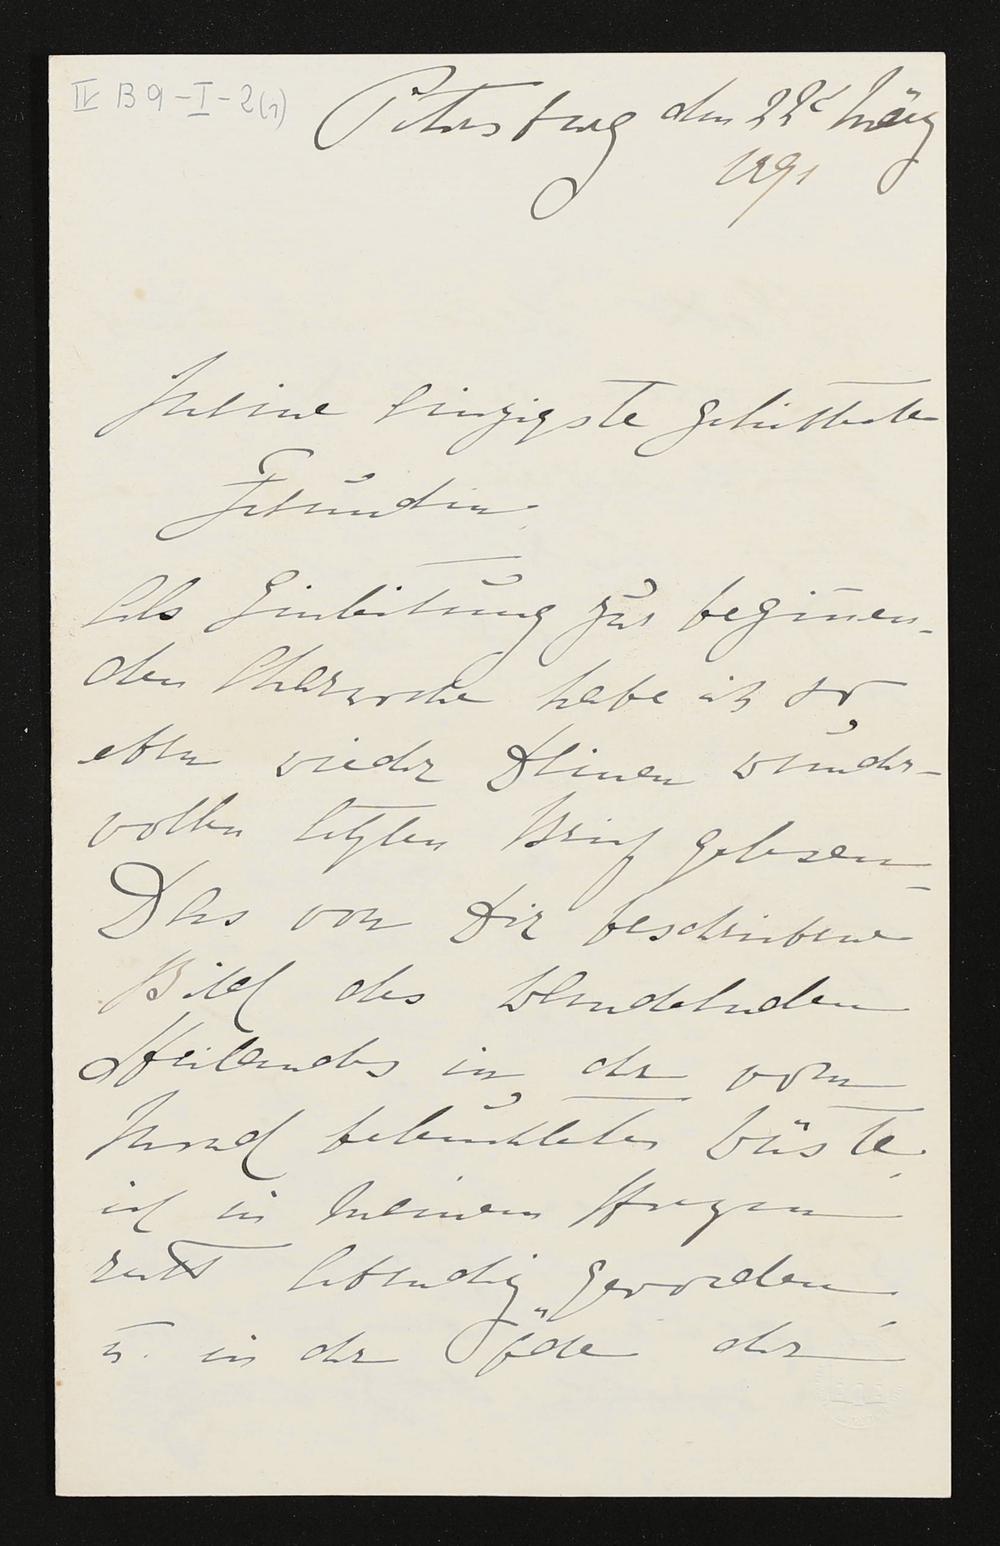 IV B 9 - I - 2 (1)
Petersburg den 22t März
1891
Meine einzigste geliebteste
Freundin.
Als Einleitung zur begin̄en-
den Charwoche habe ich so
eben wieder Deinen wunder-
vollen letzten Brief gelesen_
Das von Dir beschriebene
Bild des wandelnden
Heilandes in der vom
Mond beleuchteten Wüste,
ist in meinem Herzen
recht lebendig geworden,
u. in der Öde der